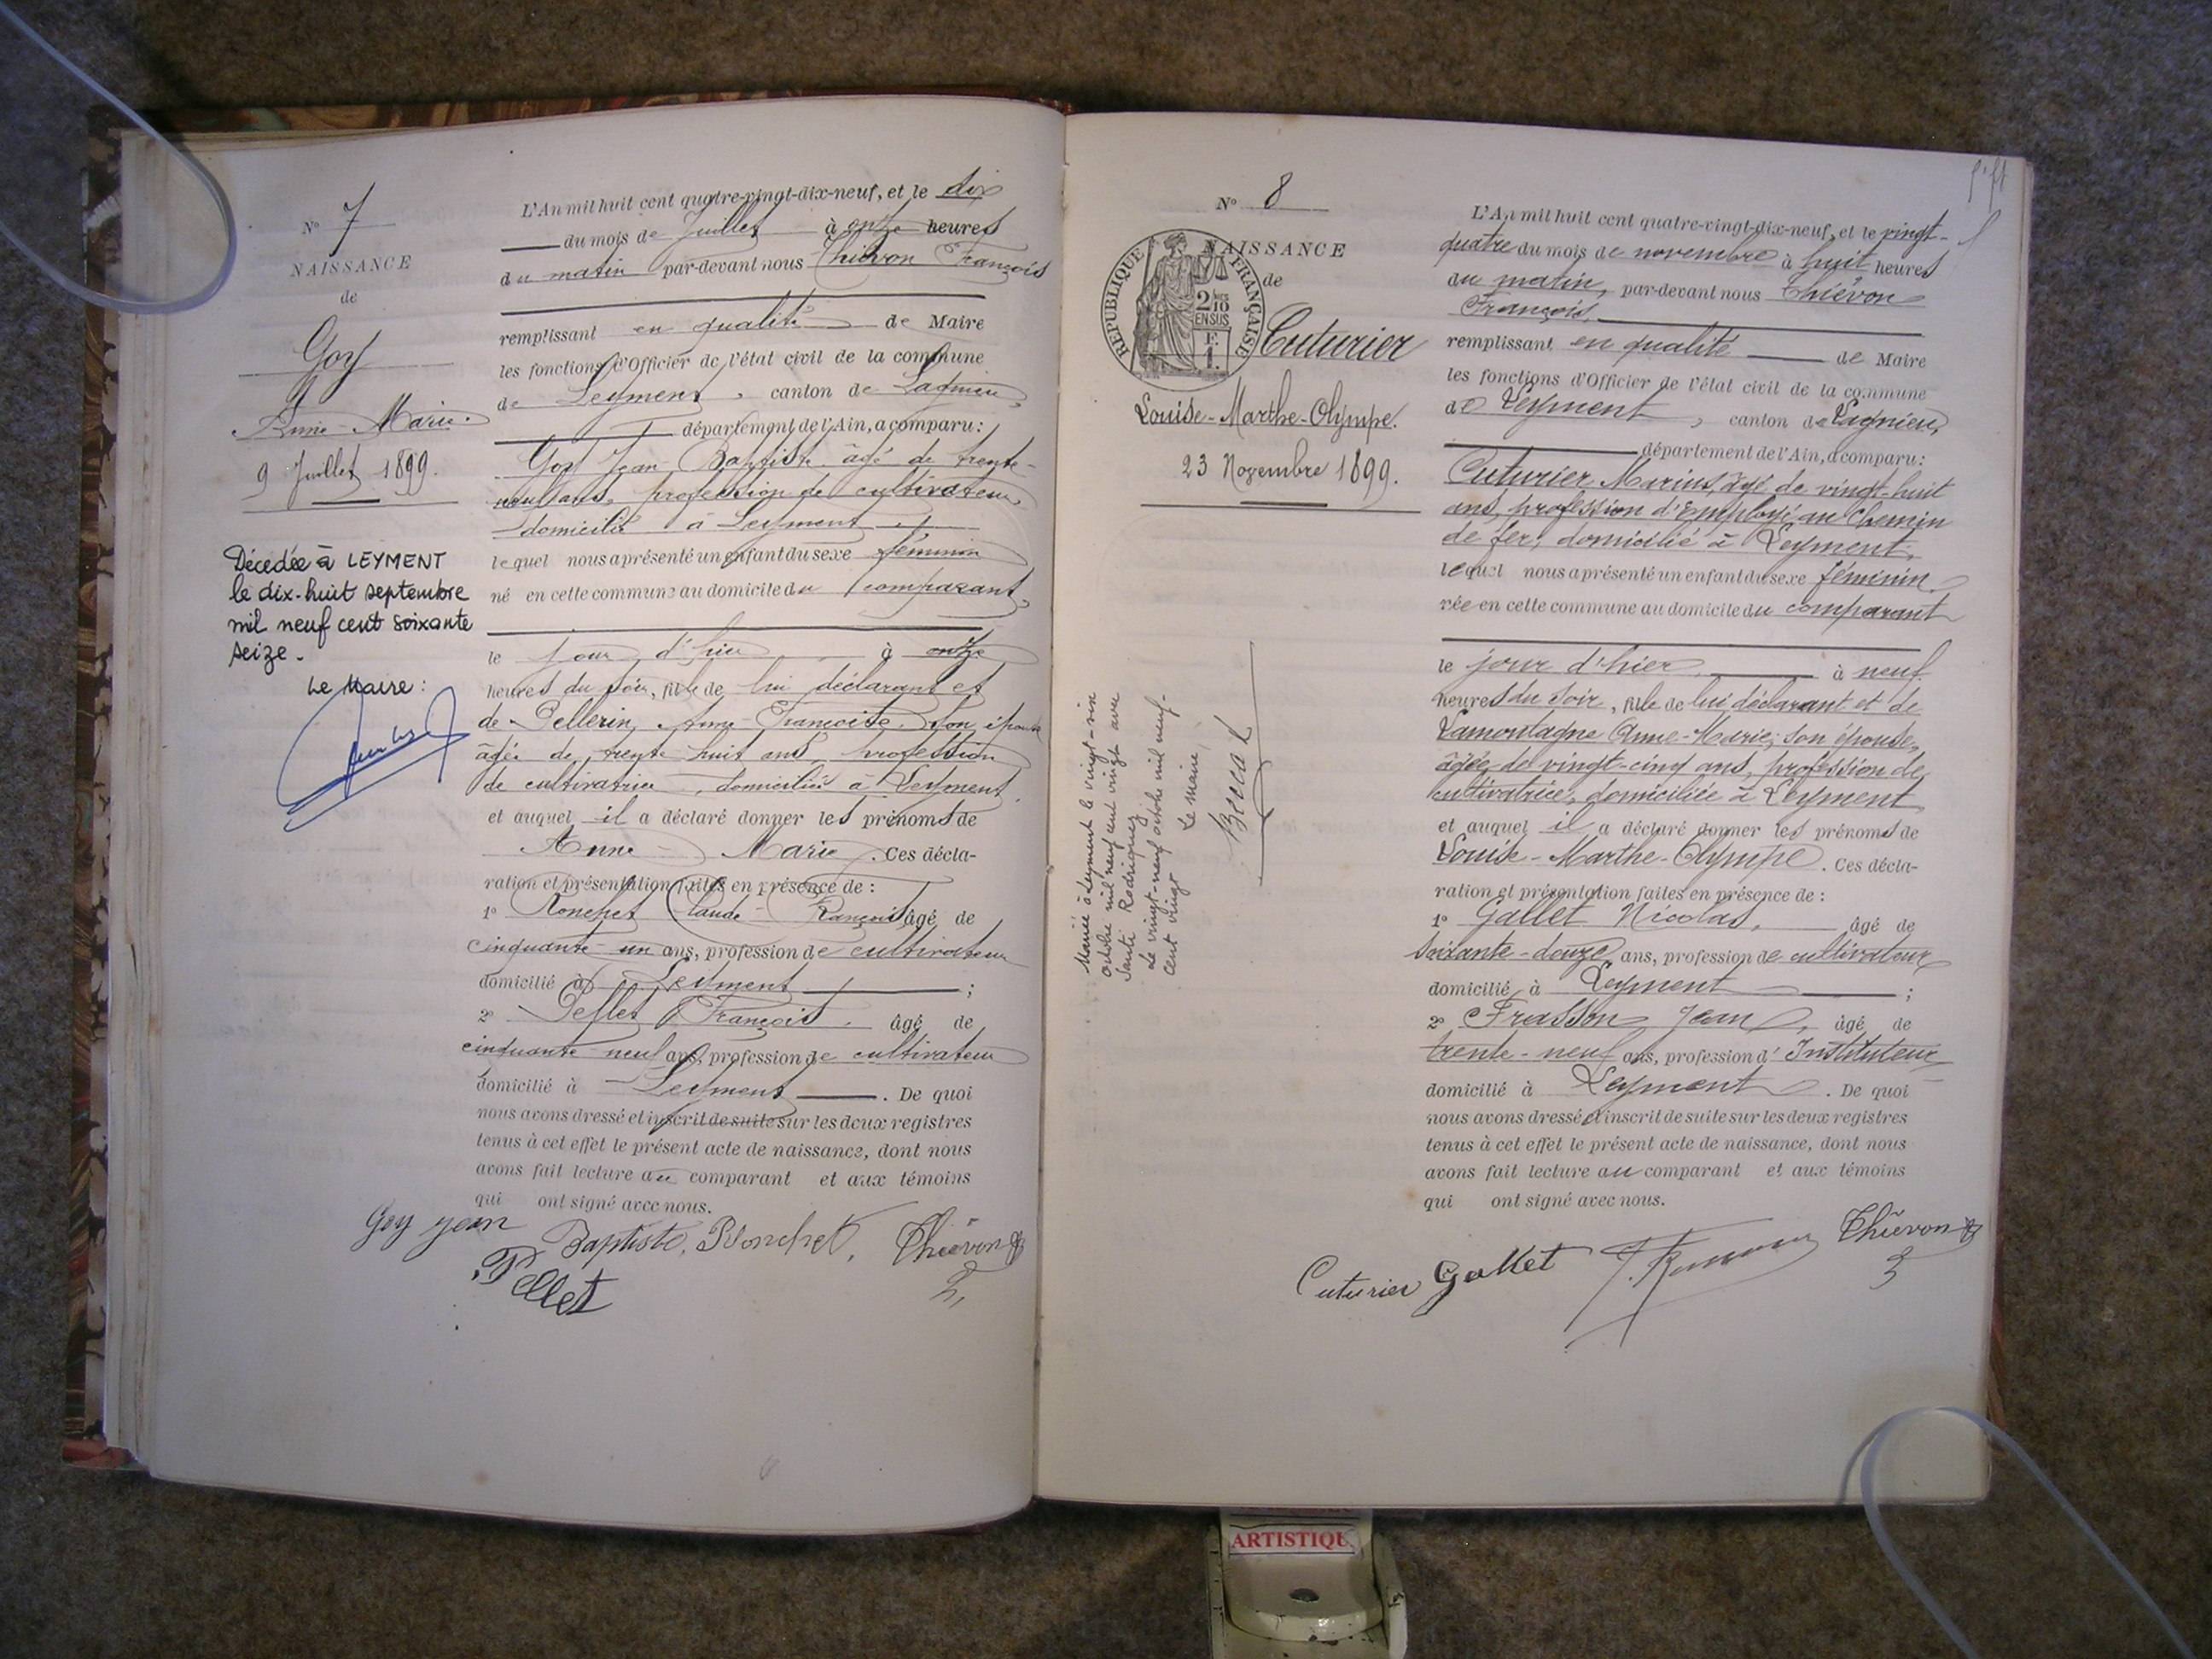 N° 7
NAISSANCE
de
Goy
Anne-Marie.
9 Juillet 1899.
Décédée à LEYMENT
le dix-huit septembre
mil neuf cent soixante
seize.
Le Maire :
L'An mil huit cent quatre-vingt-dix-neuf, et le dix
du mois de Juillet à onze heures
du matin par-devant nous Thiévon François
remplissant en qualité de Maire
les fonctions d'Officier de l'état civil de la commune
de Leyment, canton de Lagnieu,
département de l'Ain, a comparu :
Goy Jean Baptiste âgé de trente-
neuf ans, profession de cultivateur
domicilié à Leyment
lequel nous a présenté un enfant du sexe féminin
né en cette commune au domicile du comparant,
le jour d'hier à onze
heures du soir, fille de lui déclarant et
de Pellerin Anne-Françoise son épouse
âgée de trente huit ans profession
de cultivatrice, domiciliée à Leyment.
et auquel il a déclaré donner les prénoms de
Anne Marie. Ces décla-
ration et présentation faites en présence de :
1° Ronchet Claude-François âgé de
cinquante-un ans, profession de cultivateur
domicilié à Leyment ;
2° Pellet François, âgé de
cinquante neuf ans, profession de cultivateur
domicilié à Leyment. De quoi
nous avons dressé et inscrit de suite sur les deux registres
tenus à cet effet le présent acte de naissance, dont nous
avons fait lecture au comparant et aux témoins
qui ont signé avec nous.
Goy jean Baptiste, Ronchet, Thiévon F
Pellet
N° 8
NAISSANCE
de
RÉPUBLIQUE FRANÇAISE
2/10 EN SUS
Cuturier
Louise-Marthe-Olympe.
23 Novembre 1899.
Mariée à Leyment le vingt-six
octobre mil neuf cent vingt avec
Santi Rodriguez
Le vingt-neuf octobre mil neuf-
cent vingt
Le maire,
L'An mil huit cent quatre-vingt-dix-neuf, et le vingt-
quatre du mois de novembre à huit heures
du matin, par-devant nous Thiévon
François,
remplissant en qualité de Maire
les fonctions d'Officier de l'état civil de la commune
de Leyment, canton de Lagnieu,
département de l'Ain, a comparu :
Cuturier Marius, âgé de vingt-huit
ans, profession d'Employé au Chemin
de fer, domicilié à Leyment,
lequel nous a présenté un enfant du sexe féminin,
née en cette commune au domicile du comparant
le jour d'hier, à neuf
heures du soir, fille de lui déclarant et de
Lamontagne Anne-Marie, son épouse,
âgée de vingt-cinq ans, profession de
cultivatrice, domiciliée à Leyment
et auquel il a déclaré donner les prénoms de
Louise-Marthe-Olympe. Ces décla-
ration et présentation faites en présence de :
1° Gallet Nicolas, âgé de
soixante-douze ans, profession de cultivateur
domicilié à Leyment ;
2° Frasson Jean, âgé de
trente-neuf ans, profession d'Instituteur
domicilié à Leyment. De quoi
nous avons dressé et inscrit de suite sur les deux registres
tenus à cet effet le présent acte de naissance, dont nous
avons fait lecture au comparant et aux témoins
qui ont signé avec nous.
Cuturier Gallet Thiévon F
ARTISTIQUE